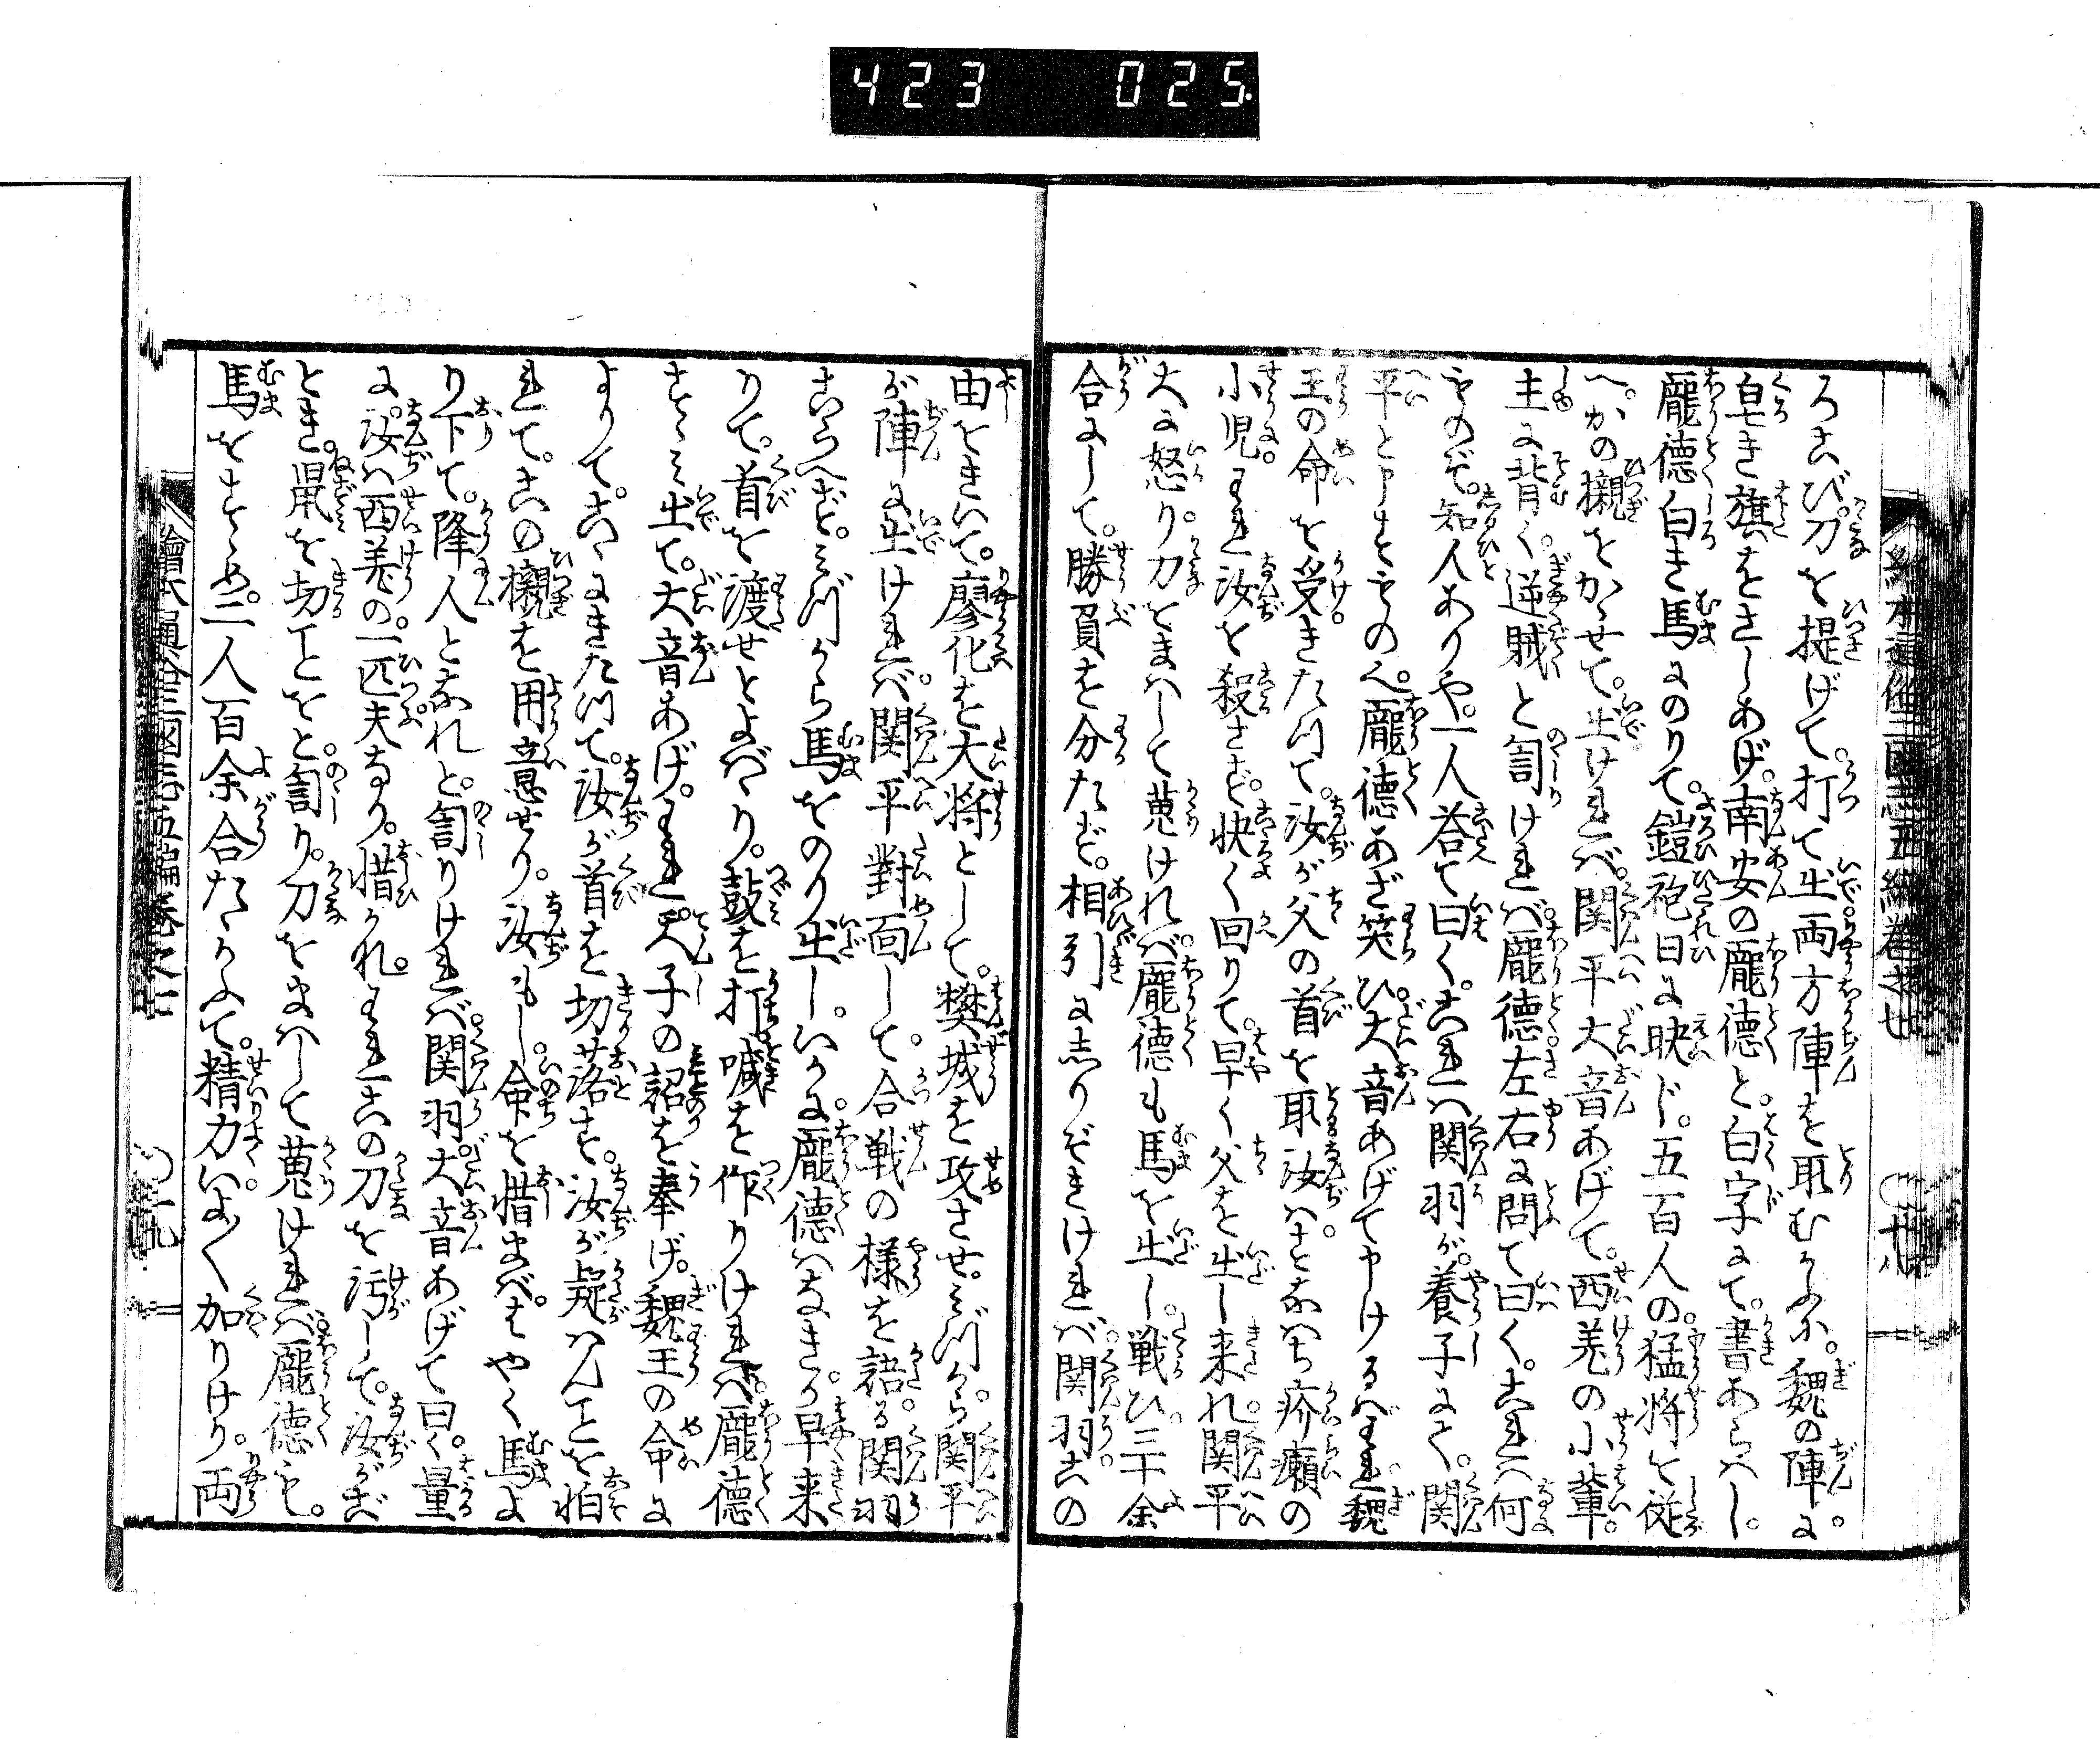 423 025.
ろこび。刀を提げて。打て出。両方陣を取むかふに。魏の陣に。
皂き旗をさしあげ。南安の龐徳と。白字にて。書あらハし。
龐徳白き馬にのりて。鎧袍日に映じ。五百人の。猛将を従
へ。かの櫬をかゝせて。出けれバ。関平大音あげて。西羌の小輩。
主に背く。逆賊と罵けれバ。龐徳左右に問て曰く。これハ何
ものぞ。知人ありや。一人答て曰く。これハ関羽が。養子にて。関
平と申すもの也。龐徳あざ笑ひ。大音あげて申けるハ。われ魏
王の命を受きたつて。汝が父の首を取。汝ハすなハち疥癩の
小児。われ汝を殺さず。快く回りて。早く父を出し来れ。関平
大に怒り。刀をまハして蒐けれバ。龐徳も馬を出し。戦ひ三十余
合にして。勝負を分たず。相引にしりぞきけれバ。関羽この
由をきいて。廖化を大将として。樊城を攻させ。みづから。関平
が陣に出けれバ。関平對面して。合戦の様を語る。関羽
こらへず。みづから馬をのり出し。いかに。龐徳ハなきか。早来
りて。首を渡せとよバゝり。鼓を打。喊を作りけれバ。龐徳
すゝみ出て。大音あげ。われ天子の詔を奉げ。魏王の命に
よりて。こゝにきたつて。汝が首を切落す。汝が疑ハんことを怕
れて。この櫬を用意せり。汝もし。命を惜まバ。はやく馬よ
り下て。降人となれと。罵りけれバ。関羽。大音あげて曰く。量
に。汝ハ西羌の。一匹夫なり。惜かれ。われこの刀を汚して。汝がご
とき。鼠を切ことをと。罵り。刀をまハして蒐けれバ。龐徳も。
馬をすゝめ。二人百余合たゝかふて。精力いよ〳〵加りけり。両
繪本通俗三国志五編巻之七